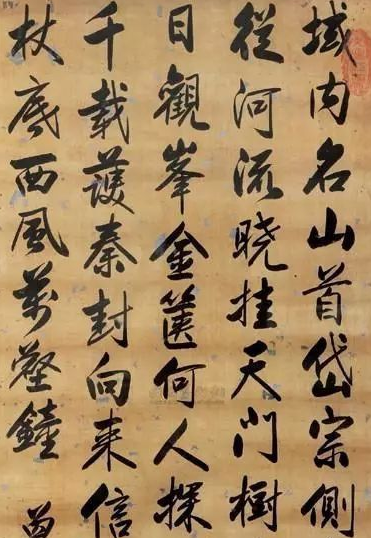 域内名山首岱宗側
從河流曉挂天門樹
日觀峯金篋何人探
千載護秦封向来信
杖底西風萬壑鐘